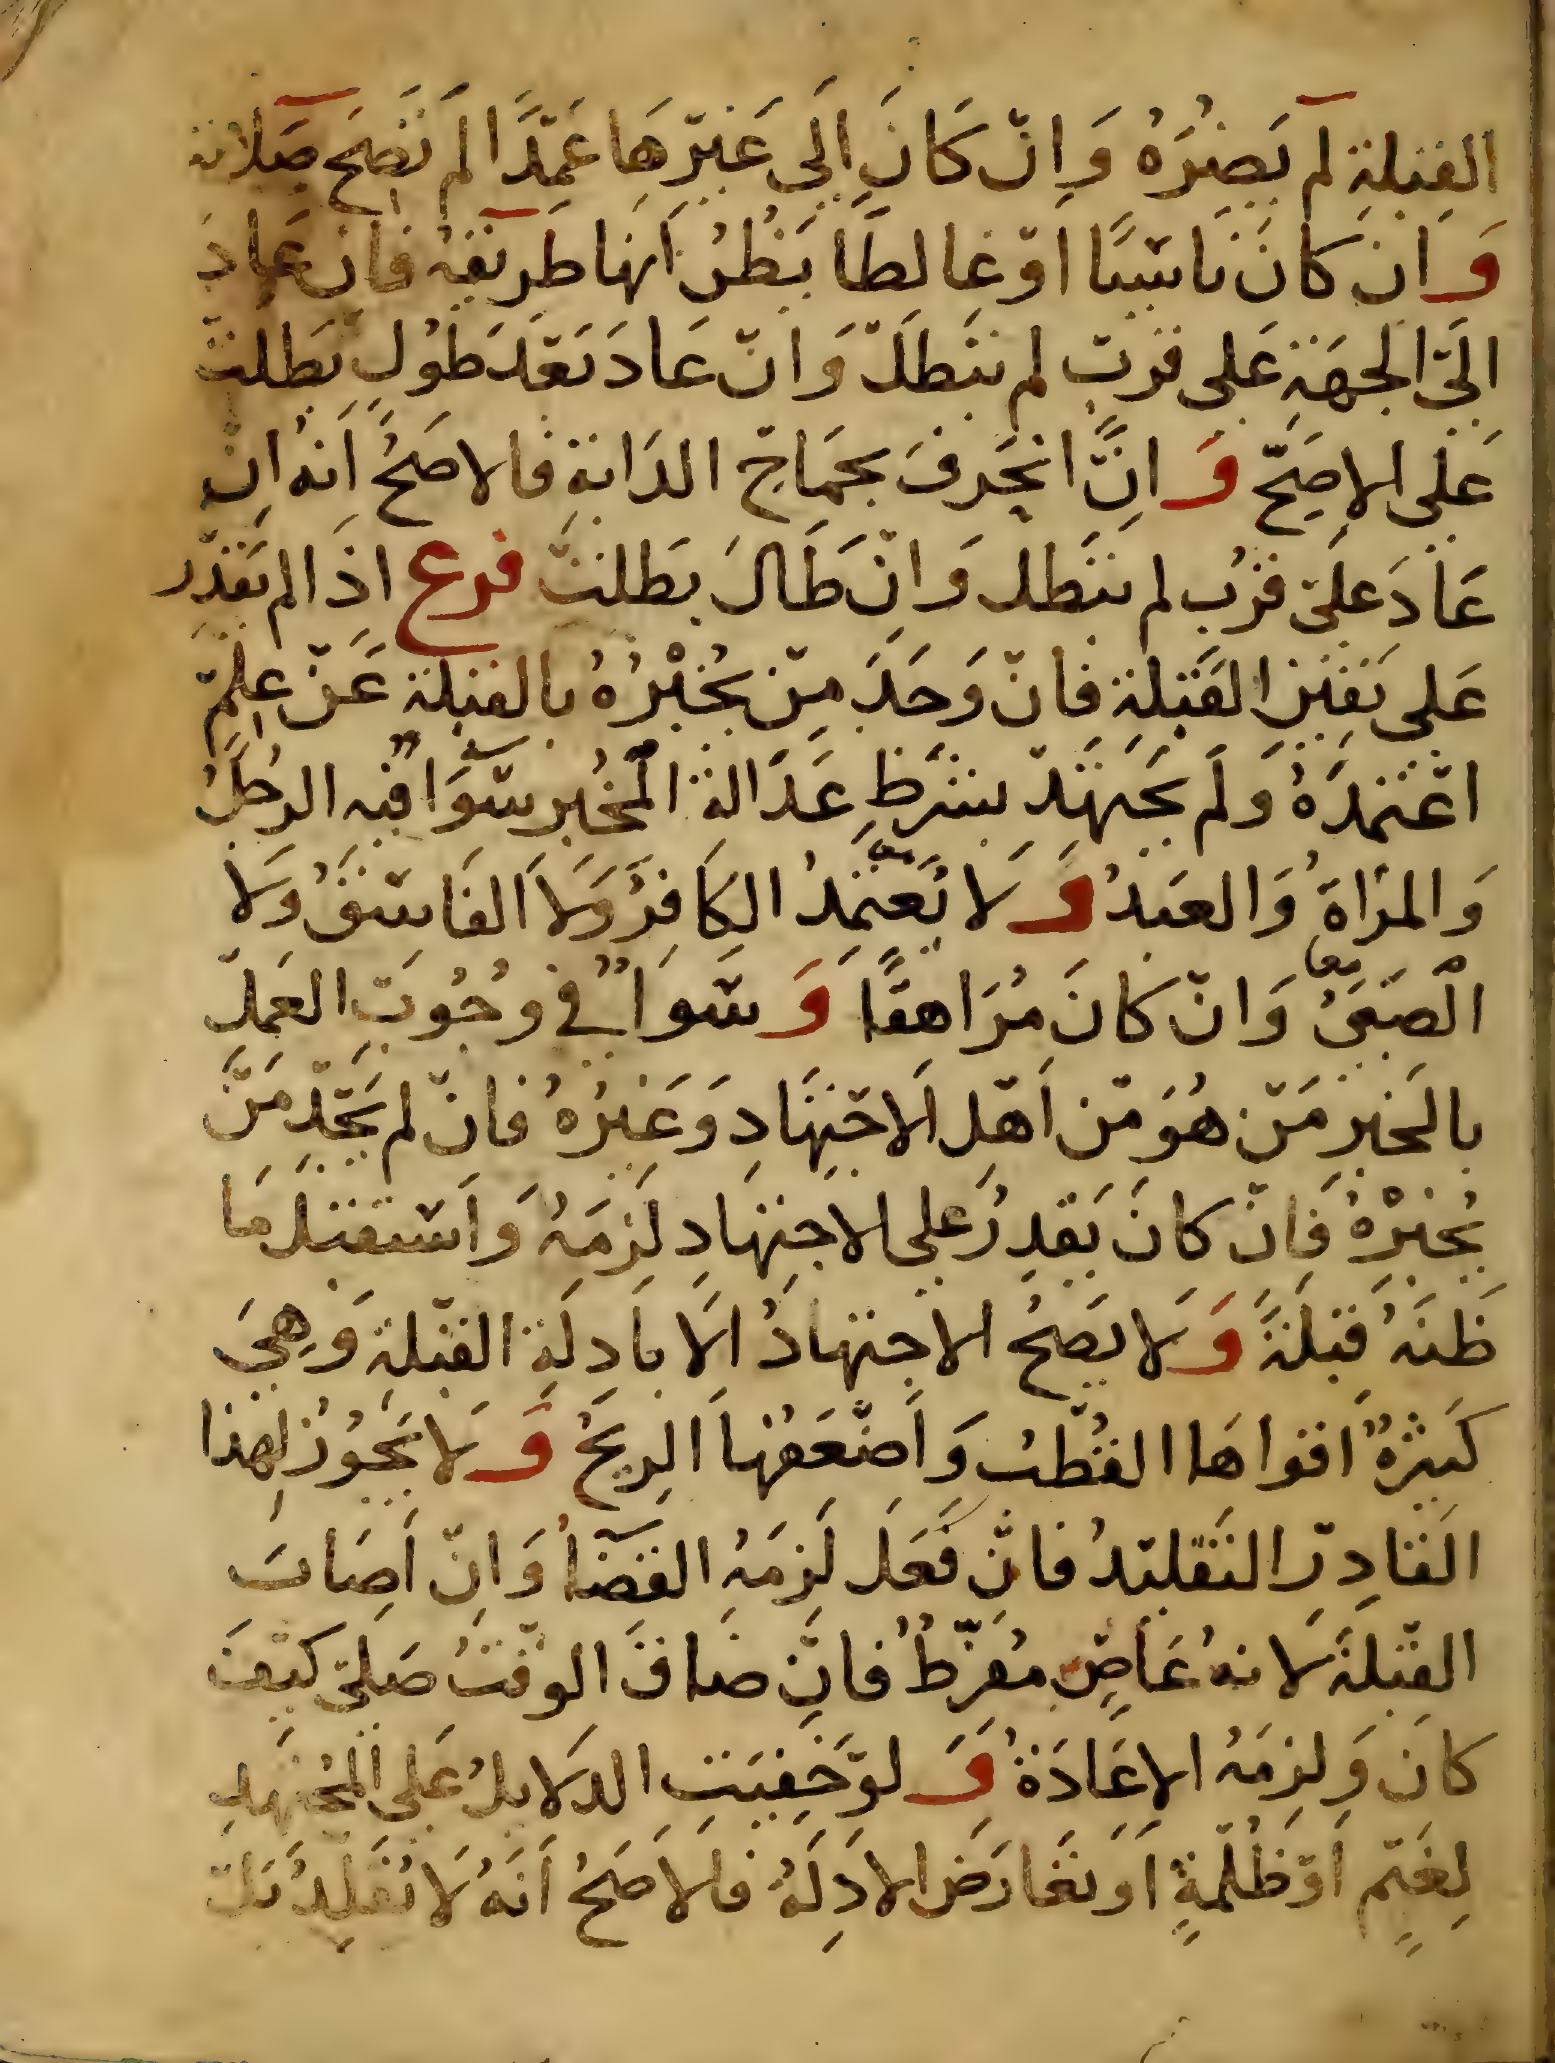 القِبْلةِ لم يَضُرَّهُ وَاِنْ كَانَ اِلَى غَيْرِهَا عَمْدًا لَمْ تَصِحَّ صَلَاته
وَان كانَ نَاسِيًا اوْ غالطًا يَظُنُّ اَنها طرِيْقهُ فَاِن عَادَ
الَى الجِهَةِ عَلى قُرْبٍ لم تَبْطلْ وَانْ عَادَ بَعْدَ طُوْلٍ بَطَلتْ
عَلى الاصَحّ وَ انِ انْحَرفَ بجِمَاحِ الدَابةِ فَالاصَحُّ اَنهُ ان
عَادَ عَلى قُرْبٍ لم تبْطل وَانْ طَالَ بَطلتْ فرع اذَا لم يَقْدِرْ
عَلى يَقِيْنِ القِبْلةِ فانْ وَجَدَ مَنْ يُخْبِرُهُ بالقبلة عَنْ عِلمٍ
اعْتمدَهُ وَلَم يَجتَهِدْ بِشَرْطِ عَدَالة المُخْبِرِ سَوَآءٌ فيه الرجُلُ
وَالمرْاةُ وَالعَبدُ وَ لَا يُعْتَمَدُ الكَافِرُ وَلَا الفَاسِقُ وَلَا
الصَّبيُّ وَانْ كانَ مُرَاهقًا وَ سَوَاءٌ في وجُوْبِ العَمَلِ
بالخبَرِ مَنْ هُوَ مِنْ اَهْلِ الاجْتِهَادِ وَغَيْرُهُ فانْ لم يَجِدْ مَنْ
يُخبرُهُ فَانْ كانَ يَقدِرُ على الاجتِهَادِ لَزِمَهُ وَاسْتقبَلَ مَا
ظَنهُ قِبْلَةً وَ لَا يَصحُّ الاجتهادُ الَا باَدِلَةِ القِبْلةِ وَهِيَ
كَثيْرةٌ اَقواهَا القُطْبُ وَاَضْعَفهَا الرِيحُ وَ لَا يَجُوْزُ لِهذا
القادِرِ التَقْليْدُ فانْ فَعَلَ لَزِمَهُ القَضَآءُ وَاِنْ اَصَابَ
القِبْلةَ لَانهُ عَاصٍ مُفرِّطٌ فانْ ضاقَ الوقْتُ صَلىّ كيْفَ
كانَ وَلزِمَهُ الاِعَادَةُ وَ لوْ خَفِيَتِ الدلَايلُ عَلى المُجْتَهِدِ
لِغَيْمٍ اَوْ ظُلْمةٍ اَو تعَارَضِ الادِلَةِ فالاَصَحُّ اَنَهُ لَا يُقَلِدُ بَلْ